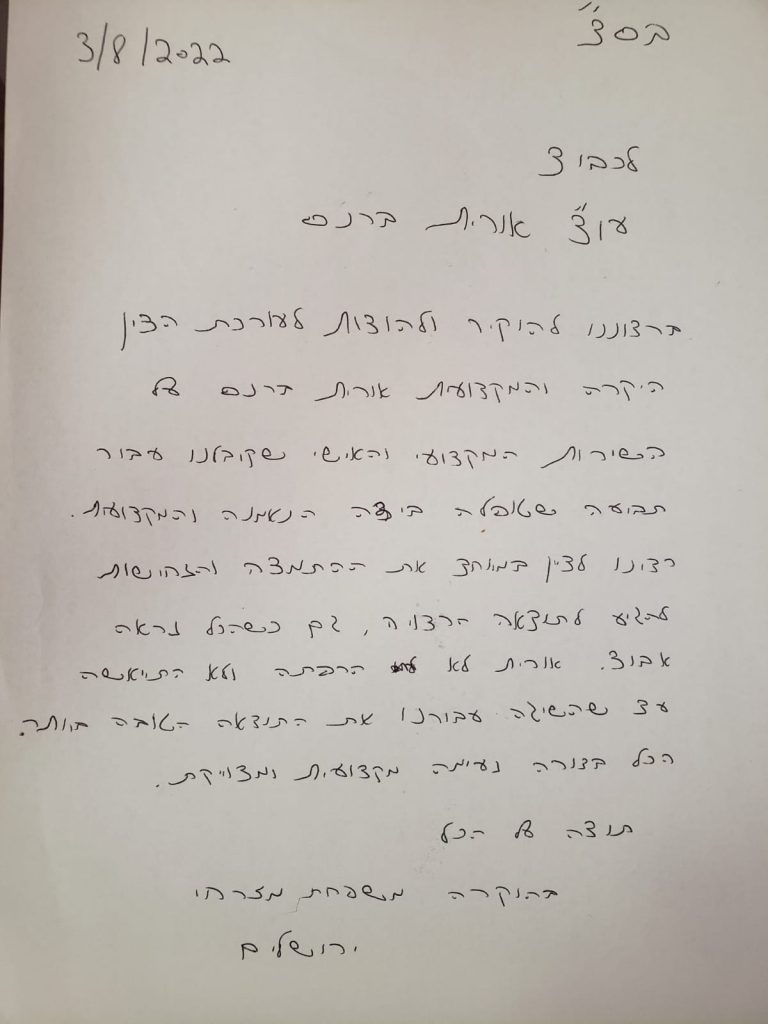 בס"ד
3/8/2022
לכבוד
עו"ד אורית ברנס
ברצוננו להוקיר ולהודות לעורכת הדין
היקרה והמקצועית אורית ברנס על
השירות המקצועי והאישי שקובלנו עבור
תביעה שטופלה בידה הנאמנה והמקצועית.
רצינו לציין במיוחד את ההתמדה והנחישות
להגיע לתוצאה הרצויה, גם כשהכל נראה
אבוד. אורית לא הרפתה ולא התייאשה
עד שהשיגה עבורנו את התוצאה הטובה ביותר.
הכל בצורה נעימה מקצועית ומדוייקת.
תודה על הכל
בהוקרה משפחת מזרחי
ירושלים